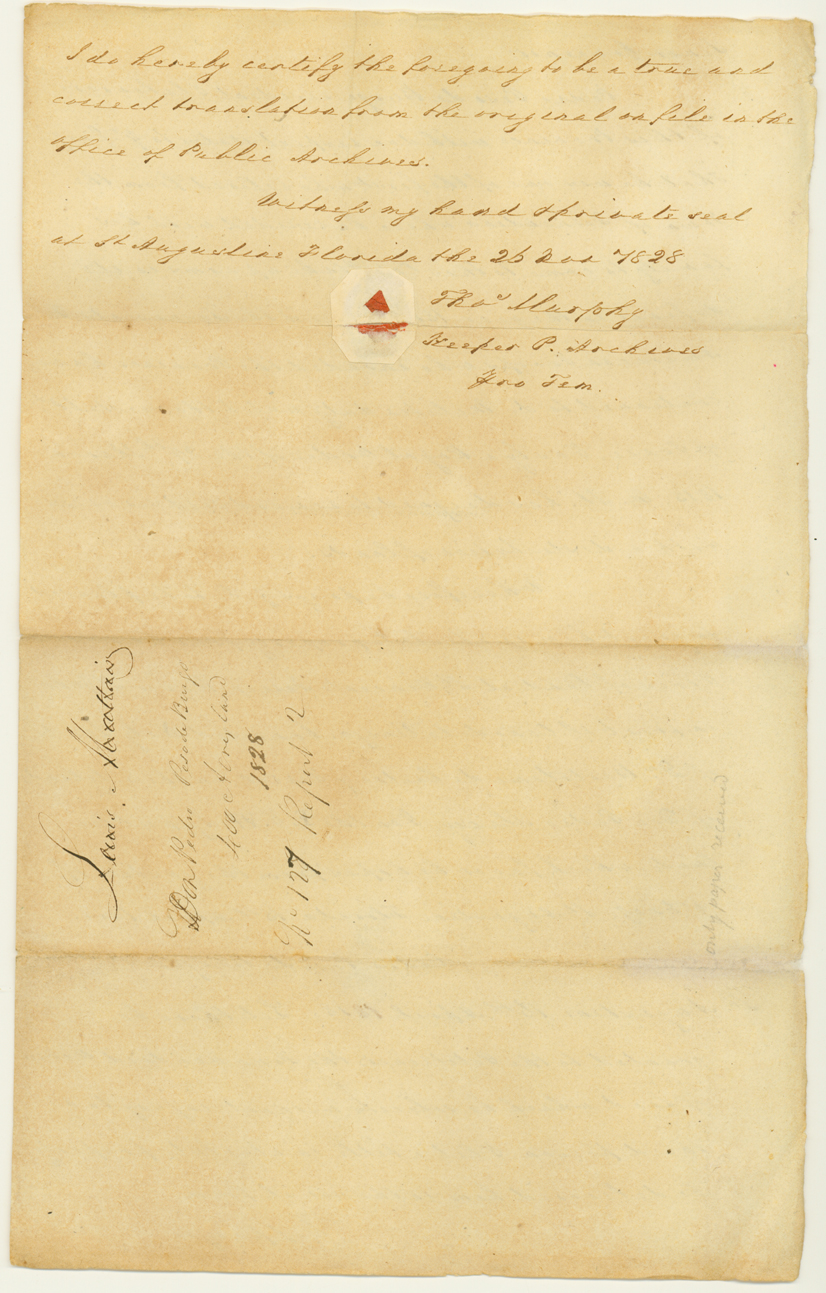 I do hereby certify the foregoing to be a true and
correct translation from the original on file in the
Office of Public Archives.
Witness my hand & private seal
at St Augustine Florida the 26 Nov 1828
Thos Murphy
Keeper P. Archives
Pro Tem.
Louis Mattair
Don Pedro
acres land
1828
No 127 Report 2
only paper received